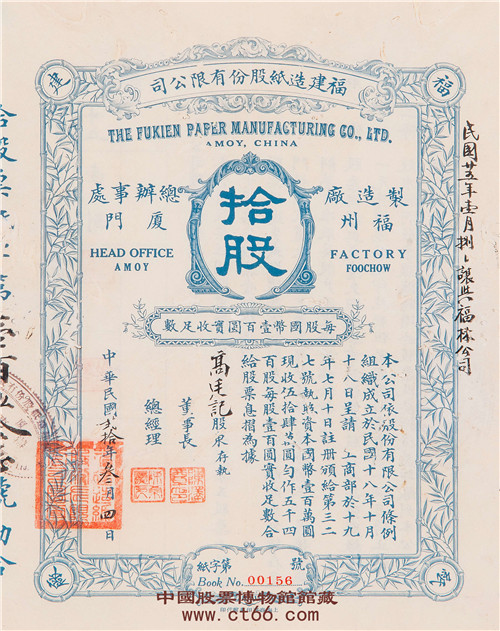 福
建
福建造紙股份有限公司
THE FUKIEN PAPER MANUFACTURING CO., LTD.
AMOY, CHINA
製造廠
福州
FACTORY
FOOCHOW
拾股
總辦事處
廈門
HEAD OFFICE
AMOY
每股國幣壹百圓實收足數
本公司依股份有限公司條例
組織成立於民國十八年十月
十八日呈請 工商部於十九
年七月十日註册頒給第三二
七號執照資本國幣壹百萬圓
現收伍拾肆萬圓勻作五千四
百股每股壹百圓實收足數合
給股票息摺為據
記股東存執
董事長
總經理
中華民國貳拾年叁月四日
紙字第號
Book No. 00156
民國廿五年壹月捌日讓與福公司
中國股票博物館館藏
www.ctoo.com